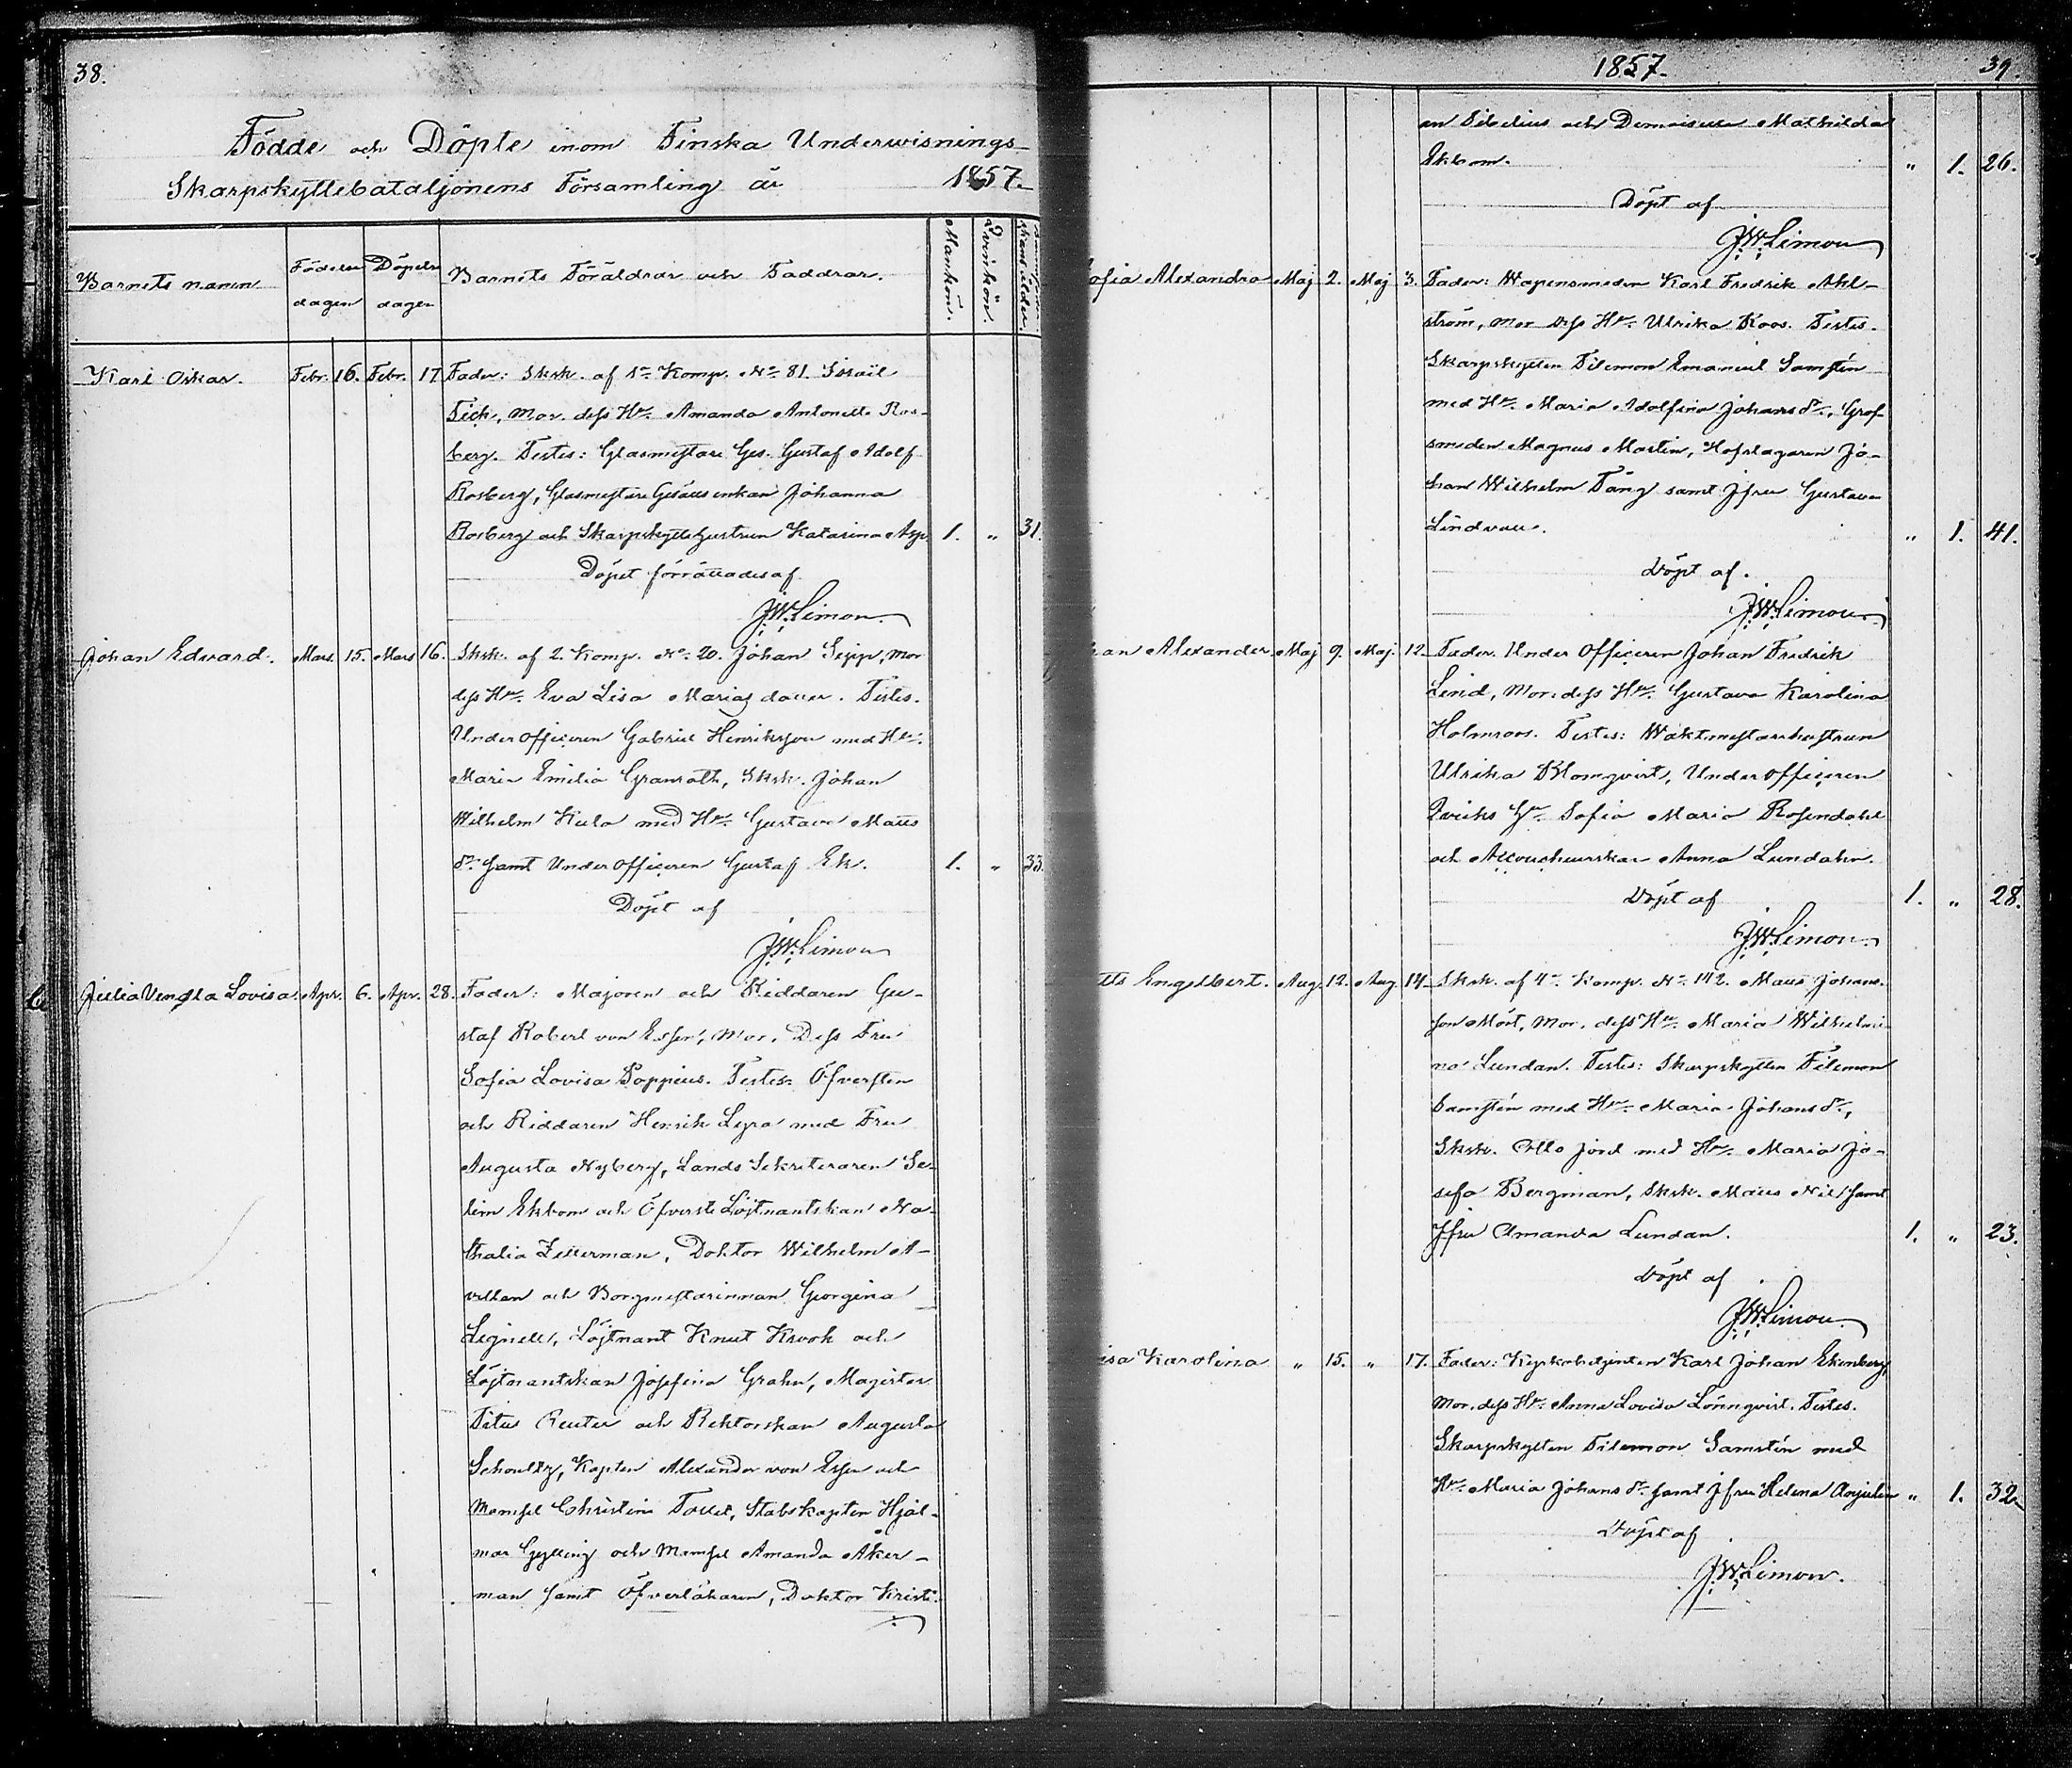 38.
Födde och Döpte inom Finska Underwisnings-
Skarpskyttebataljonens Församling år 1857.
Barnets namn Födelse dagen Döpelse dagen Barnets Föräldrar och Faddrar. Mankön. Qvinkön.
Karl Oskar. Febr. 16. Febr. 17. Fader: Skrk. af 1a Komp. No 81. Israel
Fick, Mor. dess Hu. Amanda Antonette Ros-
berg. Testes: Glasmestare Ges. Gustaf Adolf
Rosberg, Glasmestare Gesäll enkan Johanna
Rosberg och Skarpskyttehustrun Katarina Asp. 1. " 31.
Döpet förrättades af
J.W.Limon.
Johan Edvard. Mars. 15. Mars 16. Skrk. af 2. Komp. No. 20. Johan Sepp, Mor
dess Hu. Eva Lisa Mariæ dotter. Testes.
Under Officeren Gabriel Henriksson med Hu.
Maria Emilia Granroth, Skrk. Johan
Wilhelm Kula med Hu. Gustava Matts
dr. samt Under officeren Gustaf Ek. 1. " 33.
Döpt af
J.W.Limon
Julia Vendla Lovisa. Apr. 6. Apr. 28. Fader: Majoren och Riddaren Gu-
staf Robert von Essen, Mor. Dess Fru
Sofia Lovisa Poppius. Testes: Öfversten
och Riddaren Henrik Lyra med Fru
Augusta Nyberg, Lands Sekreteraren Se-
lim Ekbom och Öfverste Löjtnantskan Na-
thalia Zitterman, Doktor Wilhelm A-
vellan och Borgmestarinnan Georgina
Lignell, Löjtnant Knut Krook och
Löjtnantskan Josefina Grahn, Magister
Titus Reuter och Rektorskan Augusta
Schoultz, Kapten Alexander von Essen och
Mamsel Christine Tollet, Stabskapten Hjal-
mar Gylling och Mamsel Amanda Åker-
man samt Öfverläkaren, Doktor Kristi-
1857. 39.
an Sibelius och Demoiselle Mathilda
Ekbom. " 1. 26.
Döpt af
J.W.Limon
ofia Alexandra Maj 2. Maj 3. Fader: Wapensmeden Karl Fredrik Ahl-
ström, mor dess Hu. Ulrika Roos. Testes.
Skarpskytten Filemon Emanuel Samstén
med Hu. Maria Adolfina Johans dr., Grof-
smeden Magnus Martin, Hofslagaren Jo-
han Wilhelm Tång samt Jfru Gustava
Lindvall. " 1. 41.
Döpt af.
J.W.Limon
han Alexander Maj 9. Maj. 12. Fader. Under Officeren Johan Fredrik
Lind, Mor: dess Hu. Gustava Karolina
Holmroos. Testes: Waktmestarehustrun
Ulrika Blomqvist, Under officeren
Qvicks Hu. Sofia Maria Rosendahl
och Accoucheurskan Anna Lundahn.
Döpt af 1. " 28.
J.W.Limon.
tts Engelbert. Aug. 12. Aug. 14. Skrk. af 4e. Komp. No. 142. Matts Johans-
son Mört, Mor. dess Hu. Maria Wilhelmi-
na Lundan. Testes: Skarpskytten Filemon
Samstén med Hu. Maria Johans dr.,
Skrk. Otto Jord med Hu. Maria Jo-
sefa Bergman, Skrk. Matts Nil samt
Jfru Amanda Lundan. 1. " 23.
Döpt af
J.W.Limon
isa Karolina " 15. " 17. Fader: Kyrkobetjenten Karl Johan Ekenberg,
Mor. dess Hu. Anna Lovisa Lönnqvist. Testes.
Skarpskytten Filemon Samstén med
Hu. Maria Johans dr. samt Jfru Helena " 1. 32.
Döpt af
J.W.Limon.